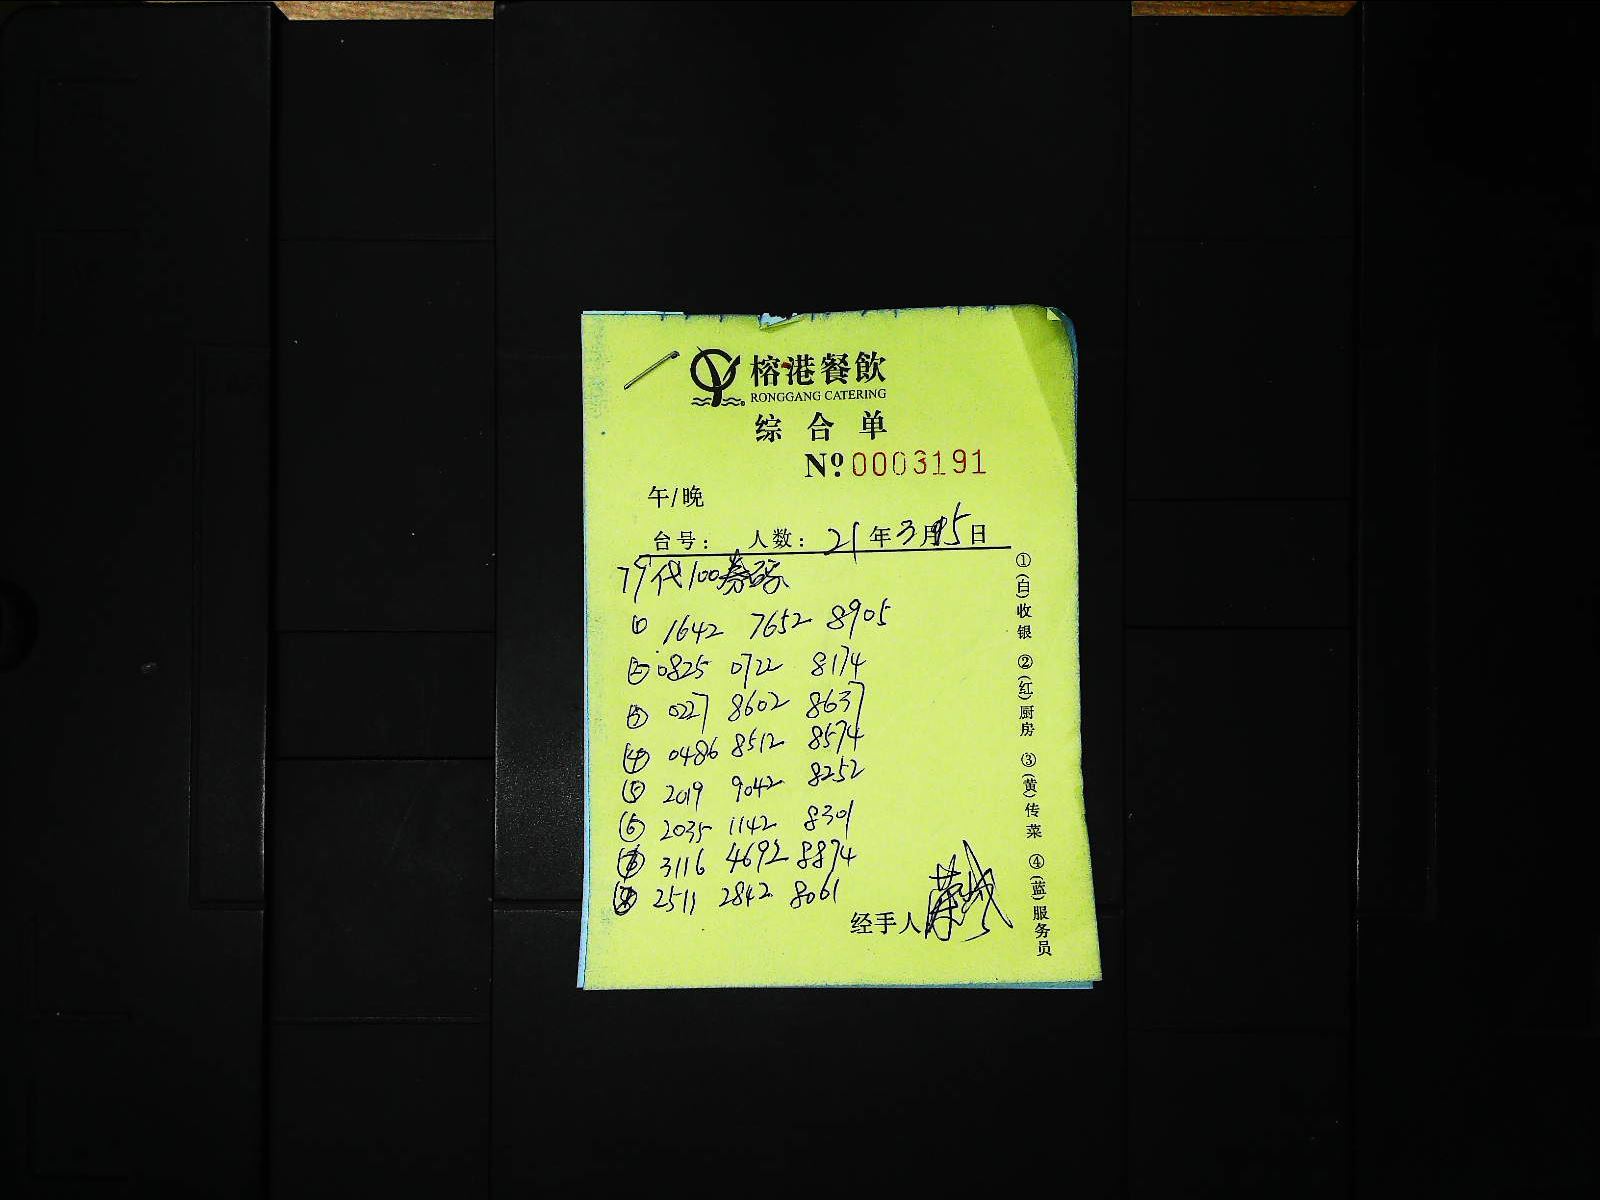 榕港餐飲
RONGGANG CATERING
综合单
No.0003191
午/晚
台号: 人数: 21年3月15日
79代100券码
① 1642 7652 8905
② 0825 0722 8174
③ 0227 8602 8637
④ 0486 8512 8574
⑤ 2019 9042 8252
⑥ 2035 1142 8301
⑦ 3116 4692 8874
⑧ 2511 2842 8061
经手人
①(白)收银 ②(红)厨房 ③(黄)传菜 ④(蓝)服务员